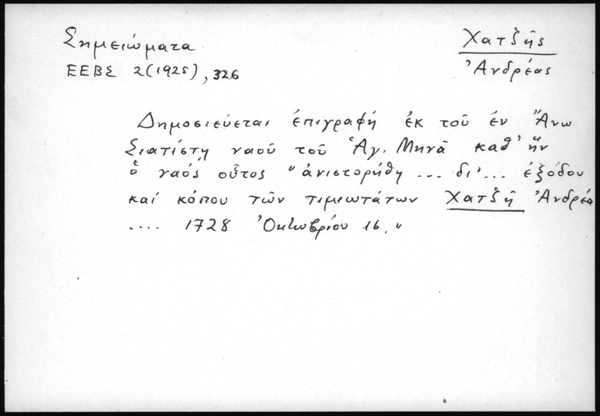 Σημειώματα
Χατζῆς
ΕΕΒΣ 2(1925), 326
Ἀνδρέας
Δημοσιεύεται ἐπιγραφή ἐκ τοῦ ἐν Ἄνω
Σιατίστῃ ναοῦ τοῦ Ἁγ. Μηνᾶ καθ' ἥν
ὁ ναός οὗτος "ἀνιστορήθη ... δι' ... ἐξόδου
καί κόπου τῶν τιμιωτάτων Χατζῆ Ἀνδρέα
.... 1728 Ὀκτωβρίου 16."